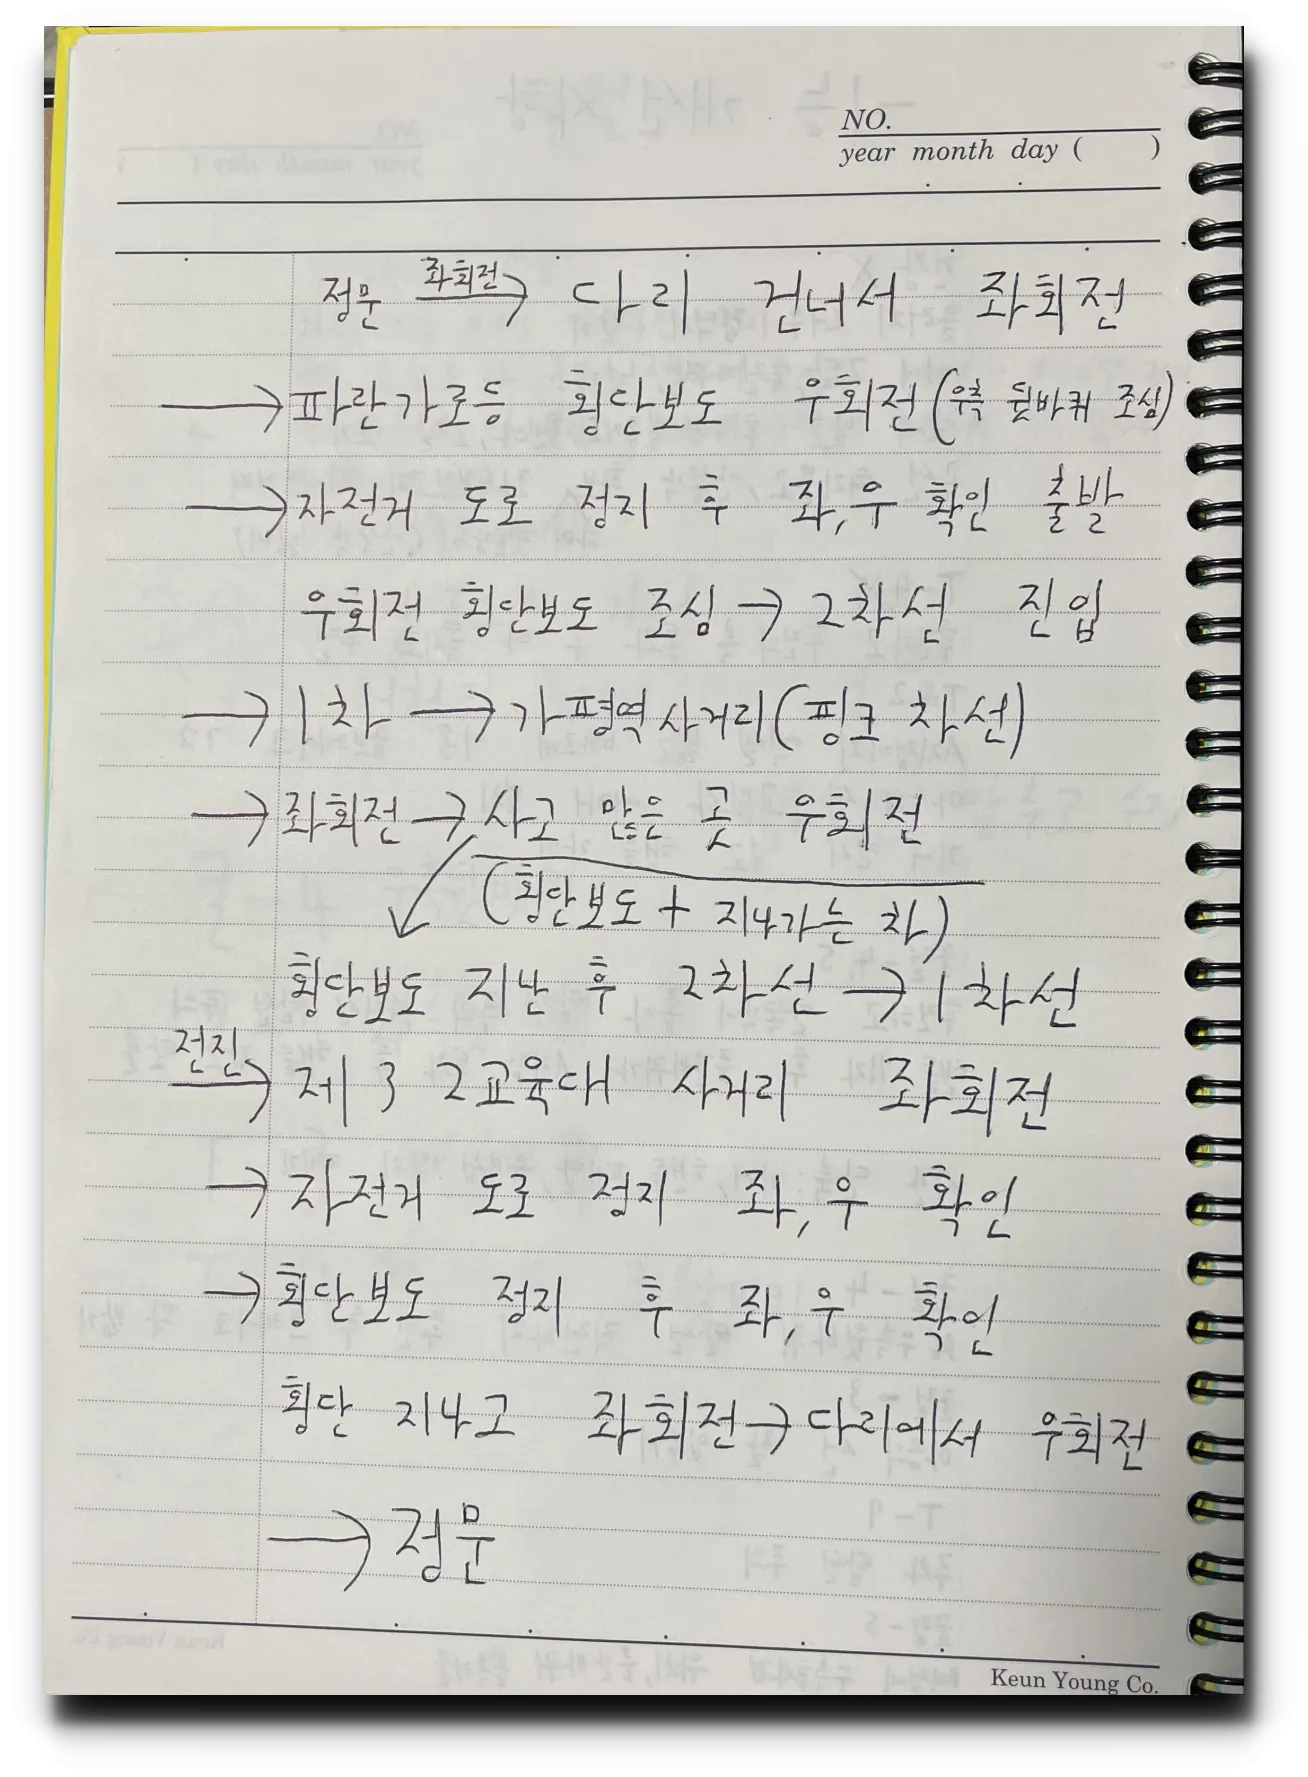 NO.
year month day ( )
정문 좌회전→ 다리 건너서 좌회전
→ 파란가로등 횡단보도 우회전(우측 뒷바퀴 조심)
→ 자전거 도로 정지 후 좌,우 확인 출발
우회전 횡단보도 조심 → 2차선 진입
→ 1차 → 가평역사거리(핑크 차선)
→ 좌회전 → 사고 많은 곳 우회전
(횡단보도 + 지나가는 차)
횡단보도 지난 후 2차선 → 1차선
전진→ 제 3 2교육대 사거리 좌회전
→ 자전거 도로 정지 좌,우 확인
→ 횡단보도 정지 후 좌,우 확인
횡단 지나고 좌회전 → 다리에서 우회전
→ 정문
Keun Young Co.